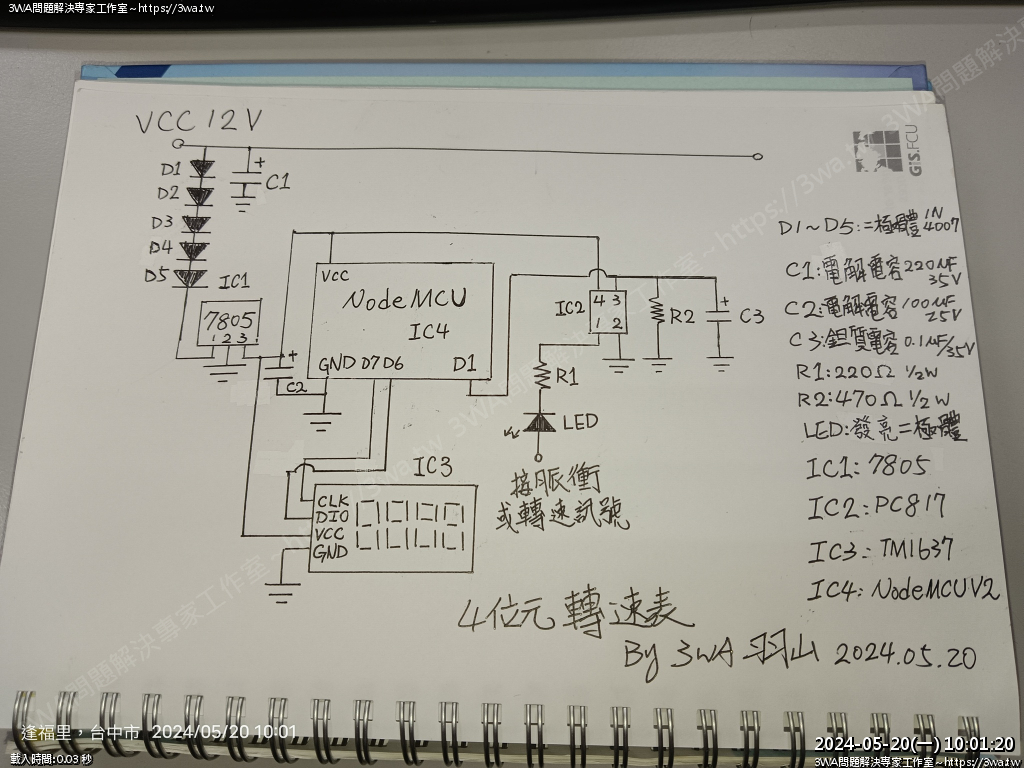 3WA問題解決專家工作室~https://3wa.tw
VCC 12V
D1
D2
D3
D4
D5
C1
GIS.FCU
IC1
7805
1 2 3
C2
VCC
NodeMCU
IC4
GND D7 D6 D1
IC2
4 3
1 2
R2
C3
R1
LED
接脈衝
或轉速訊號
IC3
CLK
DIO
VCC
GND
D1~D5:二極體 1N4007
C1:電解電容 220uF 35V
C2:電解電容 100uF 25V
C3:鉭質電容 0.1uF/35V
R1:220Ω 1/2W
R2:470Ω 1/2W
LED:發亮二極體
IC1:7805
IC2:PC817
IC3:TM1637
IC4:NodeMCUV2
4位元轉速表
By 3WA 羽山 2024.05.20
逢福里,台中市 2024/05/20 10:01
載入時間:0.03 秒
2024-05-20(一) 10:01:20
3WA問題解決專家工作室~https://3wa.tw